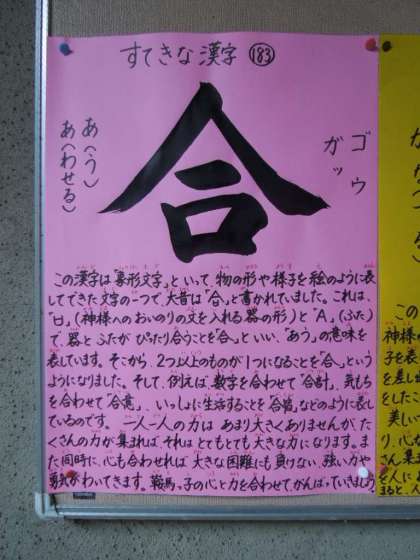 すてきな漢字 183
合
ゴウ
ガッ
あ(う)
あ(わせる)
この漢字は「象形文字」といって、物の形や様子を絵のように表
してできた文字の一つで、大昔は「合」と書かれていました。これは、
「口」(神様へのおいのりの文を入れる器の形)と「A」(ふた)
で、器とふたがぴったり合うことを「合」といい、「あう」の意味を
表しています。そこから、2つ以上のものが1つになることを「合」という
ようになりました。そして、例えば、数字を合わせて「合計」、気もち
を合わせて「合意」、いっしょに生活することを「合宿」などのように表し
ているのです。一人一人の力はあまり大きくありませんが、た
くさんの力が集まれば、それはとてもとても大きな力になります。ま
た同時に、心も合わせれば、大きな困難にも負けない、強い力や
勇気がわいてきます。鞍馬っ子の心と力を合わせて、がんばっていきましょう